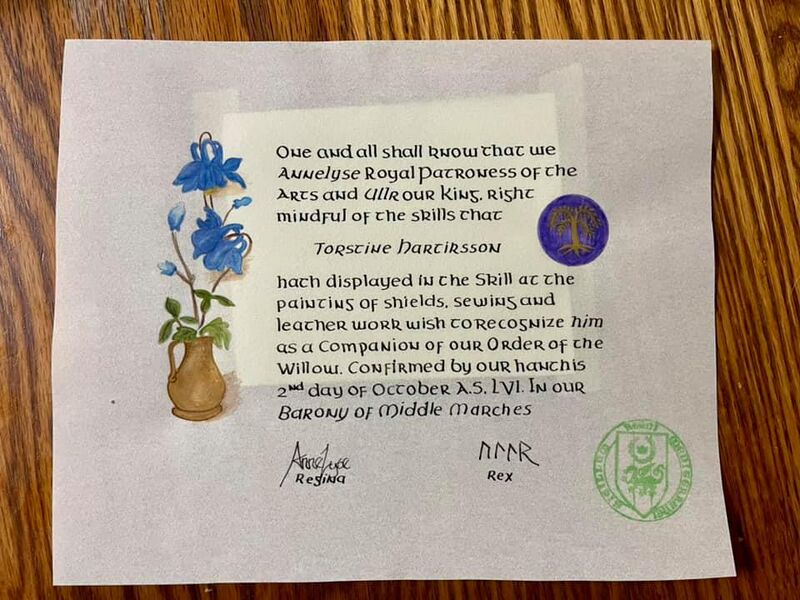 One and all shall know that we
Annelyse Royal Patroness of the
Arts and Ullr our King, right
mindful of the skills that
Torstine Hartirsson
hath displayed in the Skill at the
painting of shields, sewing and
leather work wish to recognize him
as a Companion of our Order of the
Willow. Confirmed by our hanthis
2nd day of October A.S. LVI. In our
Barony of Middle Marches
Annelyse
Regina
ᚢᛚᛚᚱ
Rex